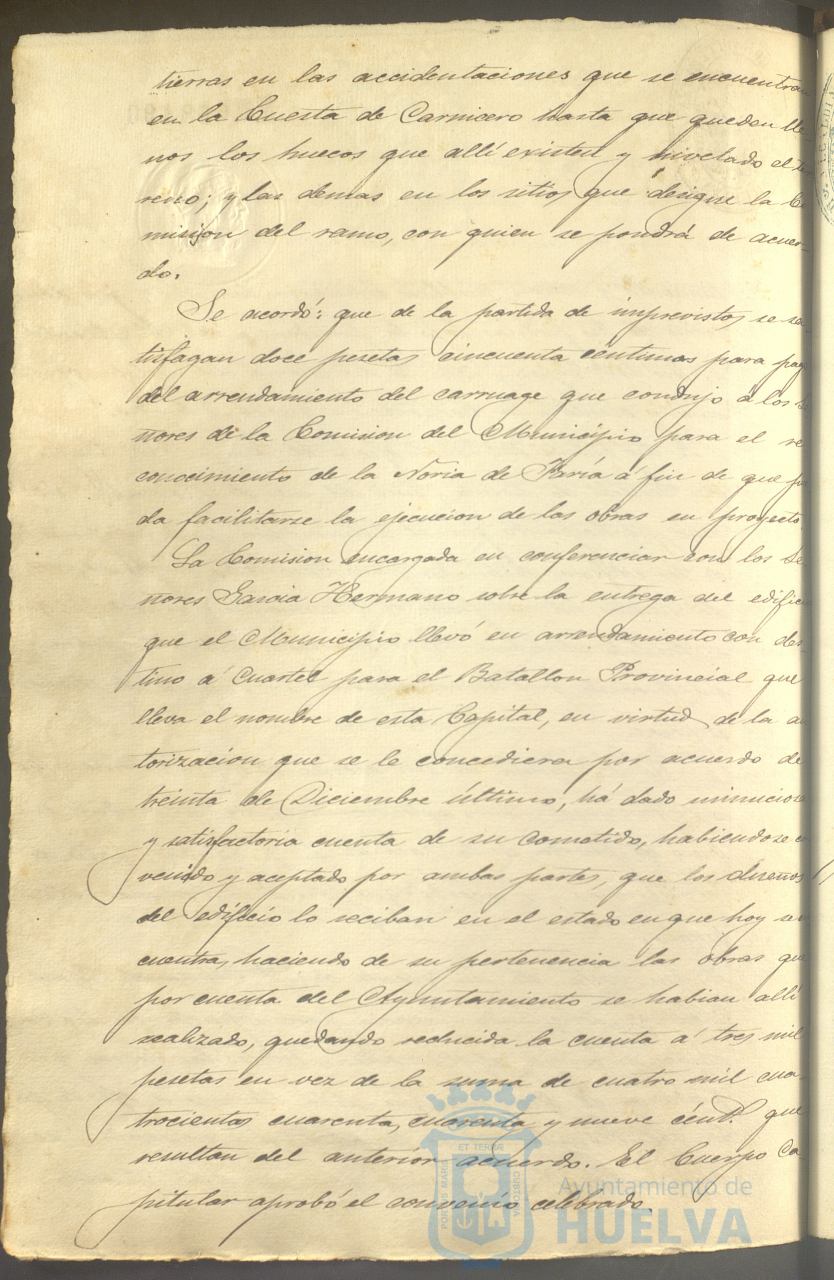 tierras en las accidentaciones que se encuentran
en la Cuesta de Carnicero hasta que queden lle
nos los huecos que allí existen y nivelado el te
rreno; y las demas en los sitios que designe la Co
mision del ramo, con quien se pondrá de acuer-
do.
Se acordó: que de la partida de imprevistos se sa
tisfagan doce pesetas cincuenta centimos para pago
del arrendamiento del carruage que condujo á los Se
ñores de la Comision del Municipio para el re
conocimiento de la Noria de Faría á fin de que pue
da facilitarse la ejecucion de las obras en proyecto.
La Comision encargada en conferenciar con los Se
ñores Garcia Hermano sobre la entrega del edificio
que el Municipio llevó en arrendamiento con des-
tino á Cuartel para el Batallon Provincial que
lleva el nombre de esta Capital, en virtud de la au
torizacion que se le concediera por acuerdo de
treinta de Diciembre último, há dado minuciosa
y satisfactoria cuenta de su cometido, habiendose con
venido y aceptado por ambas partes, que los dueños
del edificio lo reciban en el estado en que hoy se en
cuentra, haciendo de su pertenencia las obras que
por cuenta del Ayuntamiento se habian allí
realizado, quedando reducida la cuenta á tres mil
pesetas en vez de la suma de cuatro mil cua-
trocientas cuarenta, cuarenta y nueve cént.s que
resultan del anterior acuerdo. El Cuerpo Ca-
pitular aprobó el convenio celebrado.
Ayuntamiento de
HUELVA